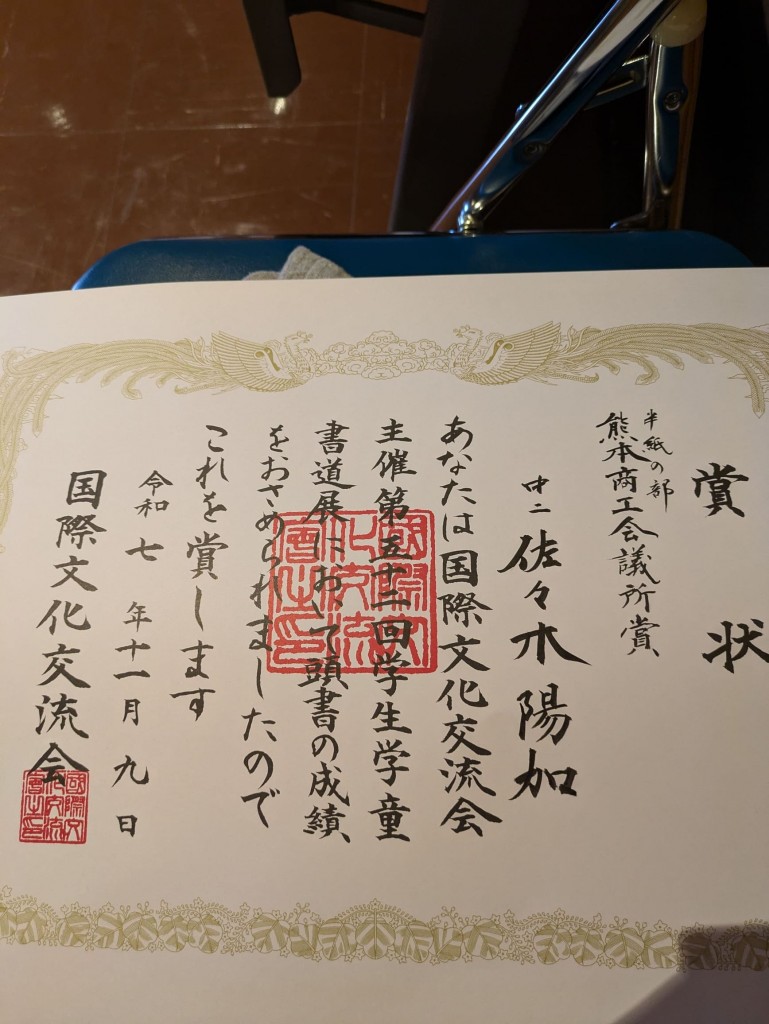 賞状
半紙の部
熊本商工会議所賞
中二 佐々木陽加
あなたは国際文化交流会
主催第五十二回学生学童
書道展において頭書の成績
をおさめられましたので
これを賞します
令和七年十一月九日
国際文化交流会